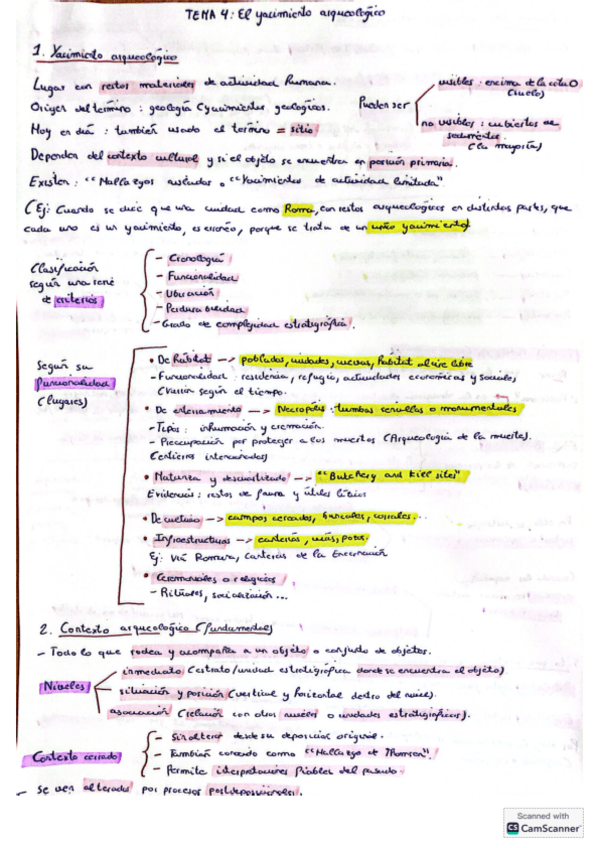 TEMA 4: El yacimiento arqueológico
1. Yacimiento arqueológico
Lugar con restos materiales de actividad humana.
Origen del término: geología (yacimientos geológicos).
Hoy en día: también usado el término = sitio
Pueden ser
visibles: encima de la cota 0 (suelo)
no visibles: cubiertos de sedimentos (la mayoría)
Depende del contexto cultural y si el objeto se encuentra en posición primaria.
Existen: "Hallazgos aislados o "Yacimientos de actividad limitada"
(Ej: Cuando se dice que una ciudad como Roma, con restos arqueológicos en distintas partes, que
cada uno es un yacimiento, es erróneo, porque se trata de un único yacimiento)
Clasificación
según una serie
de criterios
- Cronología
- Funcionalidad
- Ubicación
- Perdurabilidad
- Grado de complejidad estratigráfica.
Según su
funcionalidad
(lugares)
• De hábitat --> poblados, ciudades, cuevas, hábitat al aire libre
- Funcionalidad: residencia, refugio, actividades económicas y sociales
según el tiempo.
• De enterramiento --> Necrópolis: tumbas sencillas o monumentales
- Tipos: inhumación y cremación.
- Preocupación por proteger a los muertos (Arqueología de la muerte).
• Matanza y descuartizado --> "Butchery and kill sites"
Evidencias: restos de fauna y útiles líticos
• De cultivo --> campos cercados, bancales, corrales...
• Infraestructuras --> canteras, vías, pozos.
Ej: Vía Romana, Canteras de la Encarnación
• Ceremoniales o religiosos
- Rituales, socialización...
2. Contexto arqueológico (fundamental)
- Todo lo que rodea y acompaña a un objeto o conjunto de objetos.
Niveles
inmediato (estrato/unidad estratigráfica donde se encuentra el objeto)
situación y posición (vertical y horizontal dentro del nivel).
asociación (relación con otros niveles o unidades estratigráficas).
Contexto cerrado
- Sin alterar desde su deposición original.
- También conocido como "Hallazgo de Thomsen".
- Permite interpretaciones fiables del pasado
- Se ven alterados por procesos postdeposicionales.
Scanned with
CS CamScanner